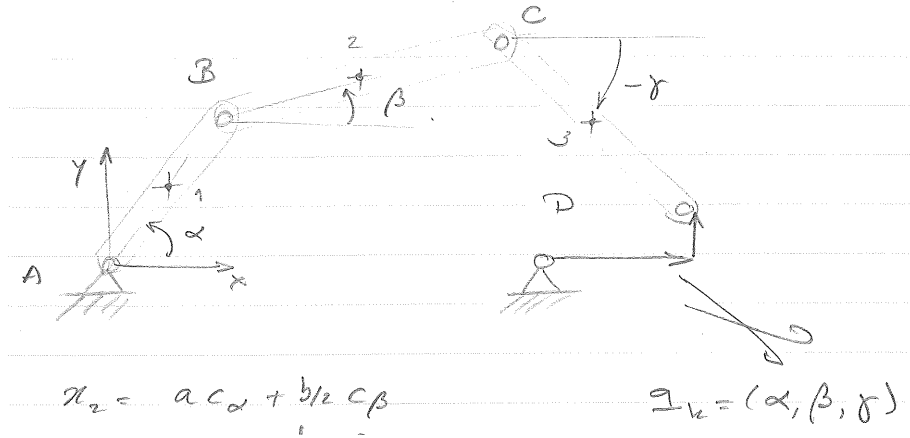 C
2
B
β
-γ
3
y
1
D
α
A
x
x₂ = a c_α + b/2 c_β
q_k = (α, β, γ)